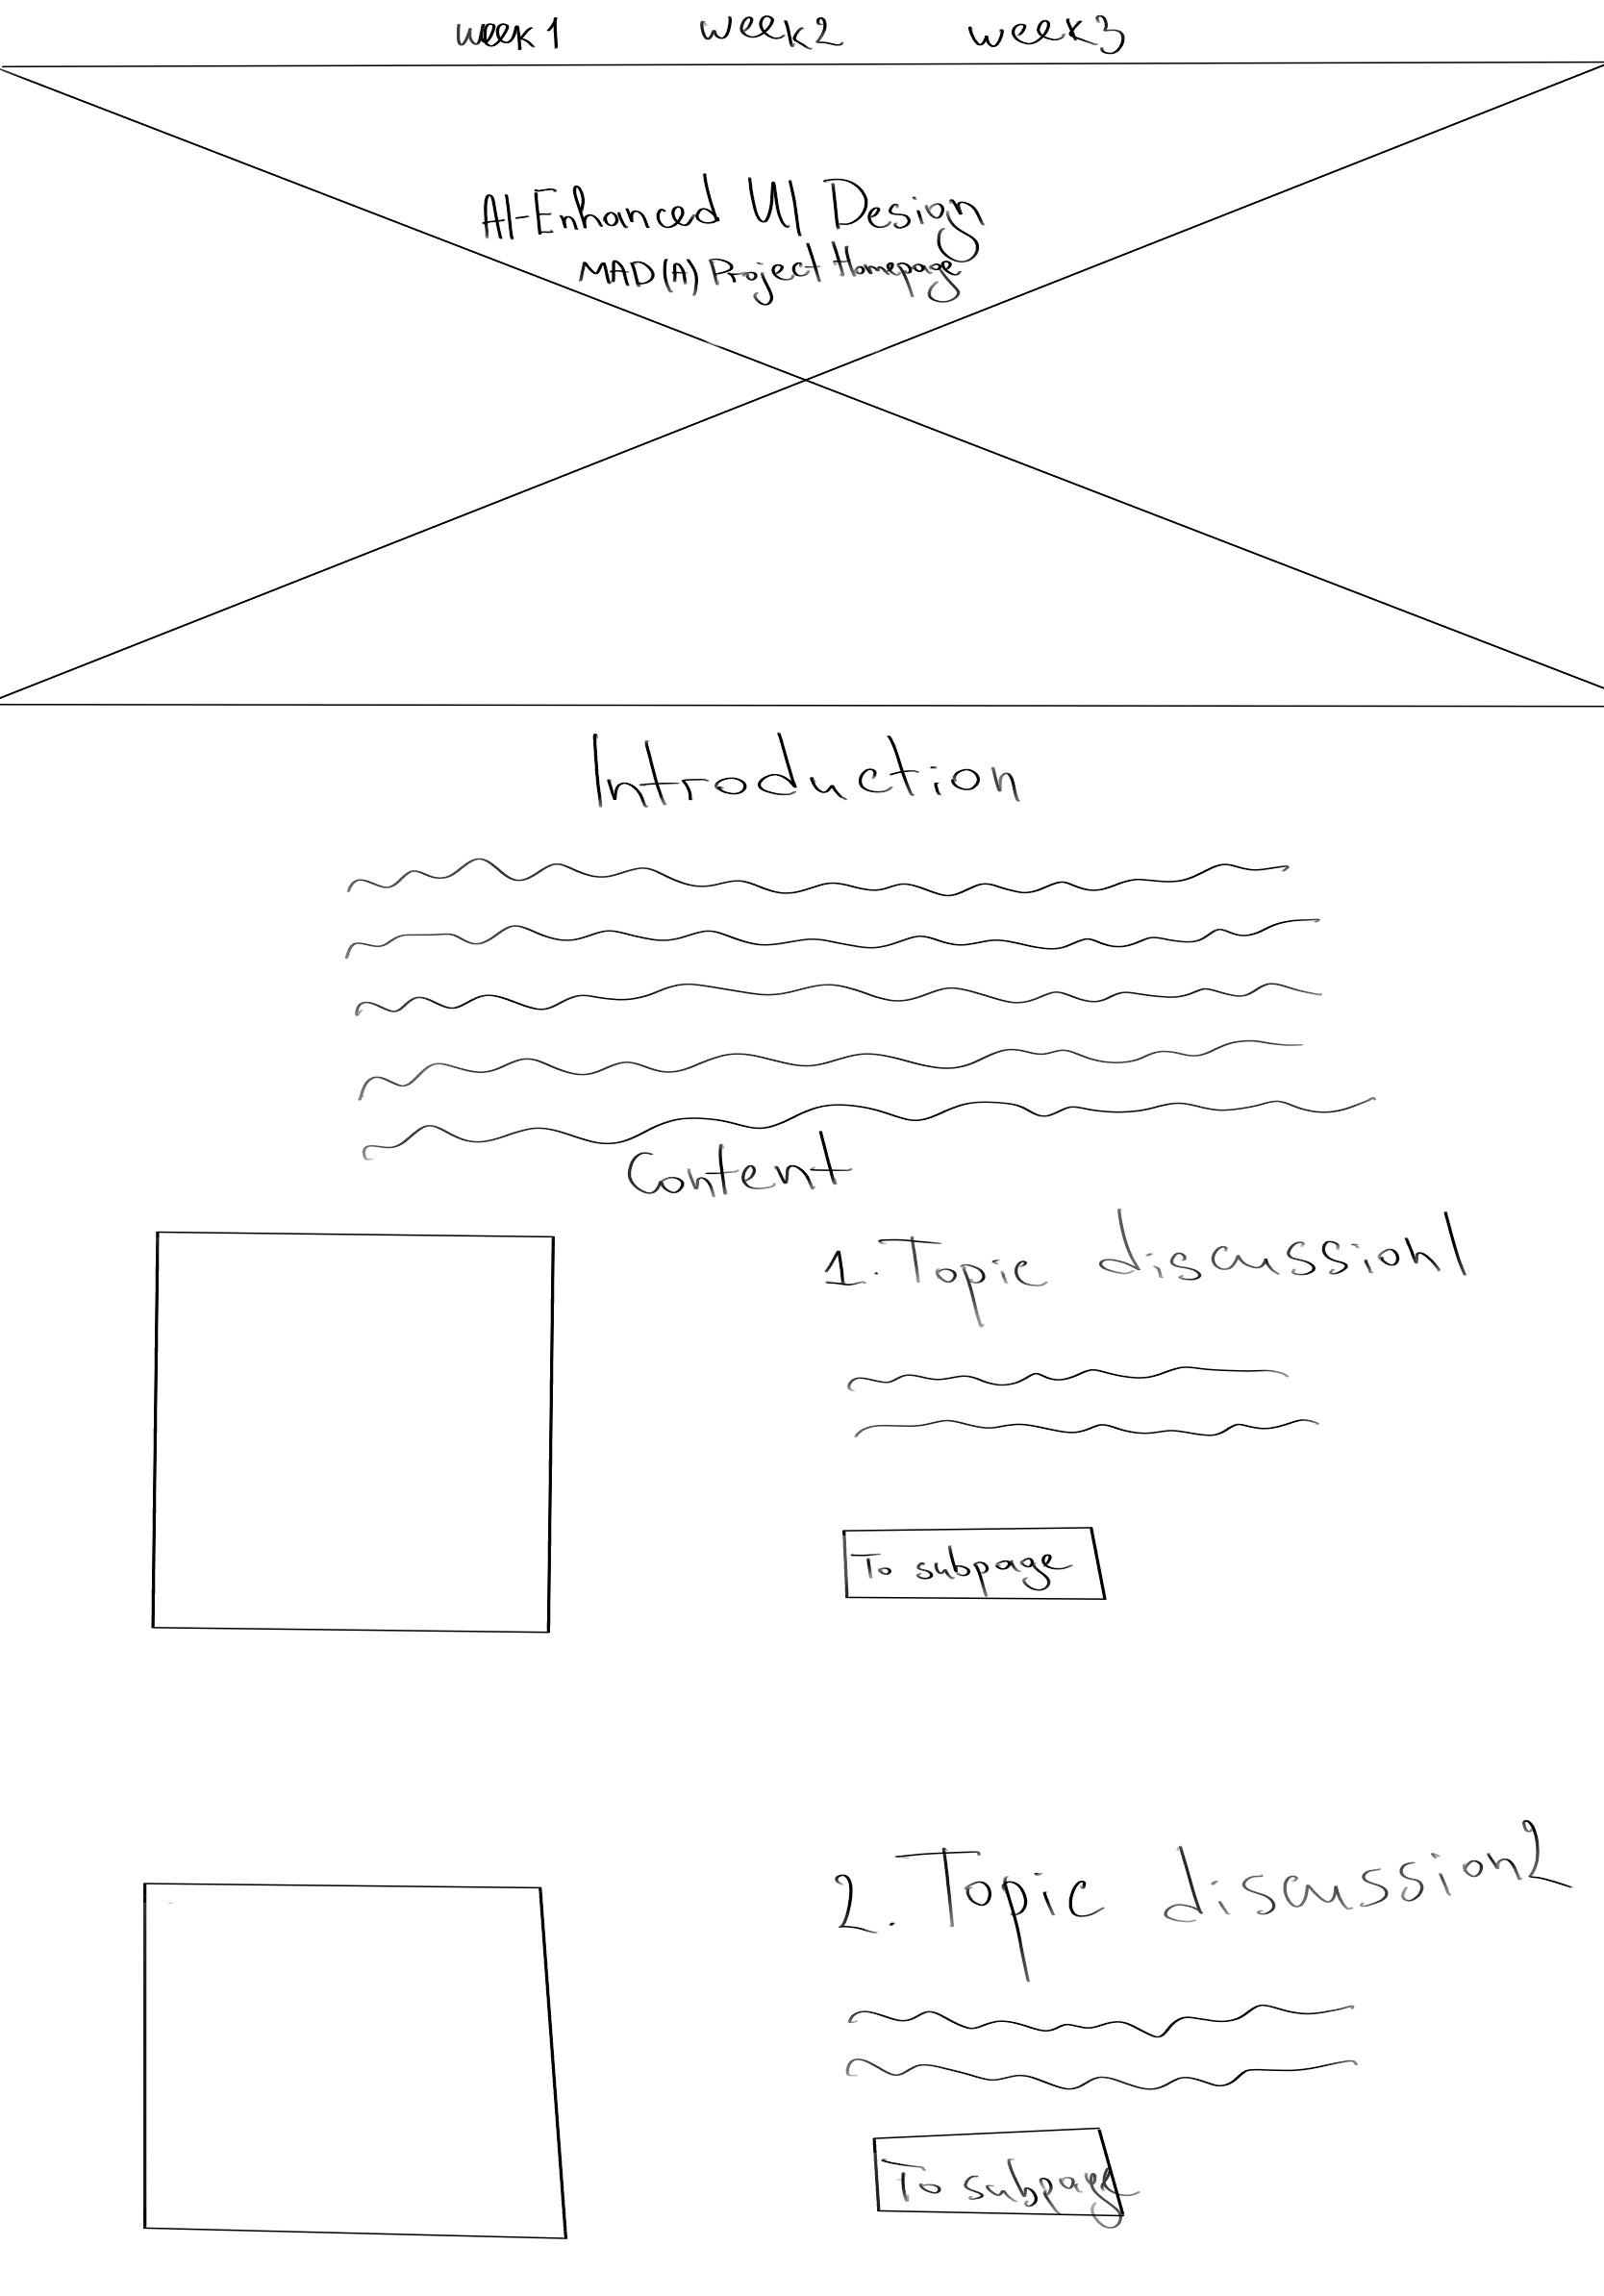 week 1 week2 week3
AI-Enhanced UI Design
MAD(A) Project Homepage
Introduction
Content
1. Topic discussion1
To subpage
2. Topic discussion2
To subpage